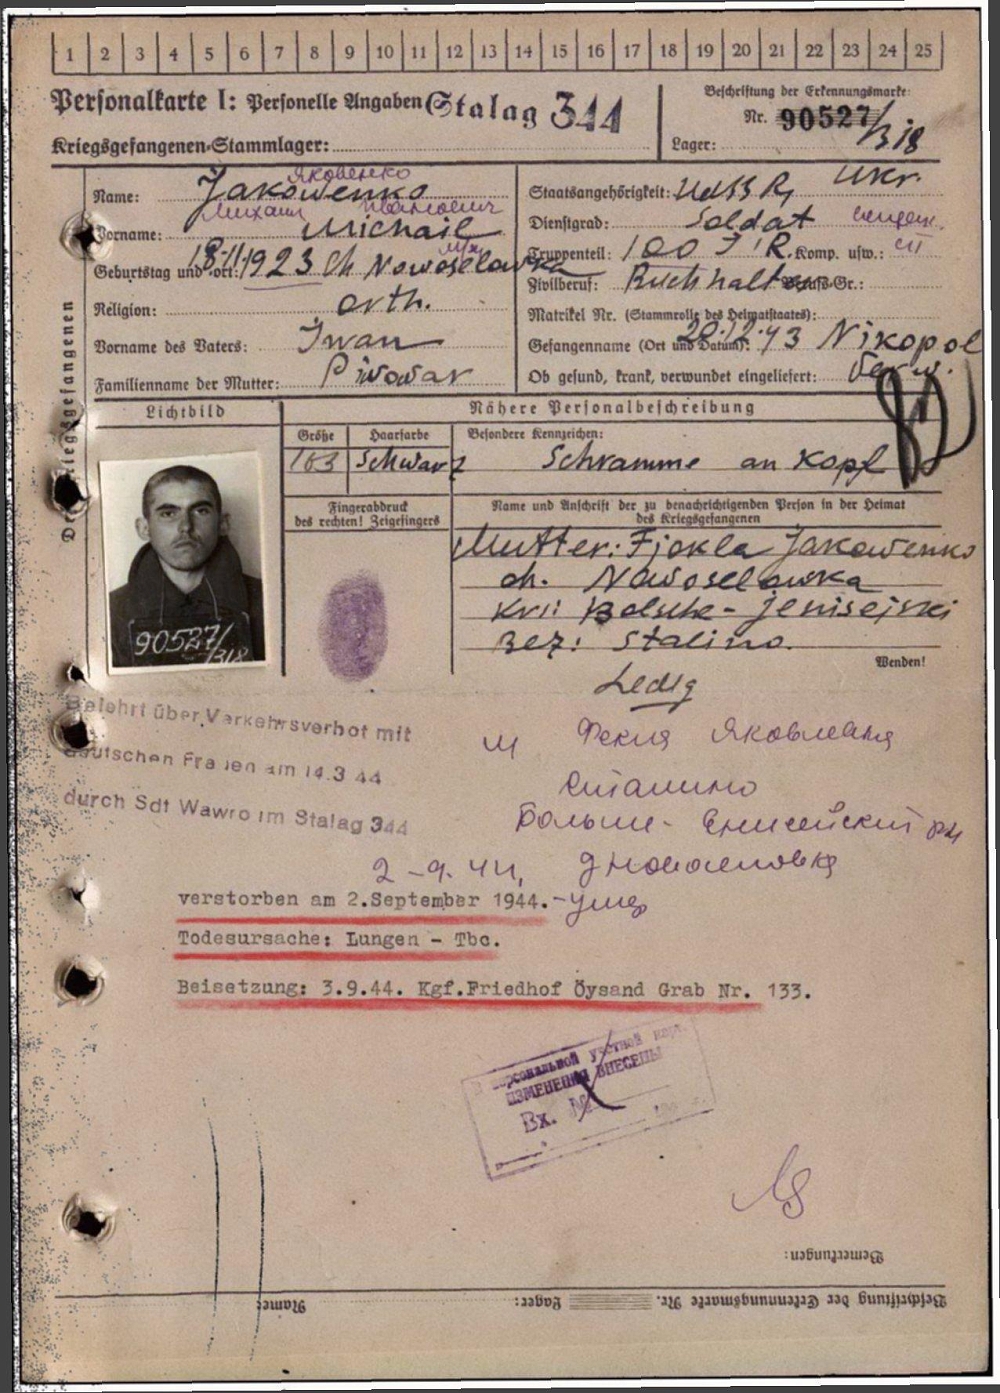 1 2 3 4 5 6 7 8 9 10 11 12 13 14 15 16 17 18 19 20 21 22 23 24 25
Personalkarte I: Personelle Angaben
Stalag 344
Kriegsgefangenen-Stammlager:
Beschriftung der Erkennungsmarke
Nr. 90527/318
Lager:
Des Kriegsgefangenen
Яковенко
Name: Jakowenko
Михаил Иванович
Vorname: Michail
Geburtstag und -ort: 18.11.1923 Ch Nowoselowka
Religion: orth.
Vorname des Vaters: Iwan
Familienname der Mutter: Piwowar
Staatsangehörigkeit: UdSSR, Ukr.
Dienstgrad: Soldat
Truppenteil: 100 J.R. Komp. usw.:
Zivilberuf: Buchhalter Berufs-Gr.:
Matrikel Nr. (Stammrolle des Heimatstaates):
Gefangenname (Ort und Datum): 20.12.43 Nikopol
Ob gesund, krank, verwundet eingeliefert: verw.
Lichtbild
Nähere Personalbeschreibung
Größe Haarfarbe Besondere Kennzeichen:
163 Schwarz Schramme an Kopf
Fingerabdruck
des rechten! Zeigefingers
Name und Anschrift der zu benachrichtigenden Person in der Heimat
des Kriegsgefangenen
Mutter: Fjokla Jakowenko
ch. Nowoselowka
Kr.: Bolsche-Jenisejski
Bez: Stalino.
Wenden!
Ledig
90527/
318
Belehrt über Verkehrsverbot mit
deutschen Frauen am 14.3.44
durch Sdf Wawro im Stalag 344
М Фекла Яковлевна
Сталино
Больше-Енисейский рн
2-9.44,
verstorben am 2.September 1944.-умер
Todesursache: Lungen - Tbc.
Beisetzung: 3.9.44. Kgf.Friedhof Öysand Grab Nr. 133.
В персональной учетной карт.
ИЗМЕНЕНИЯ ВНЕСЕНЫ
Вх. №
Bemerkungen:
Name: Lager: Beschriftung der Erkennungsmarke Nr.